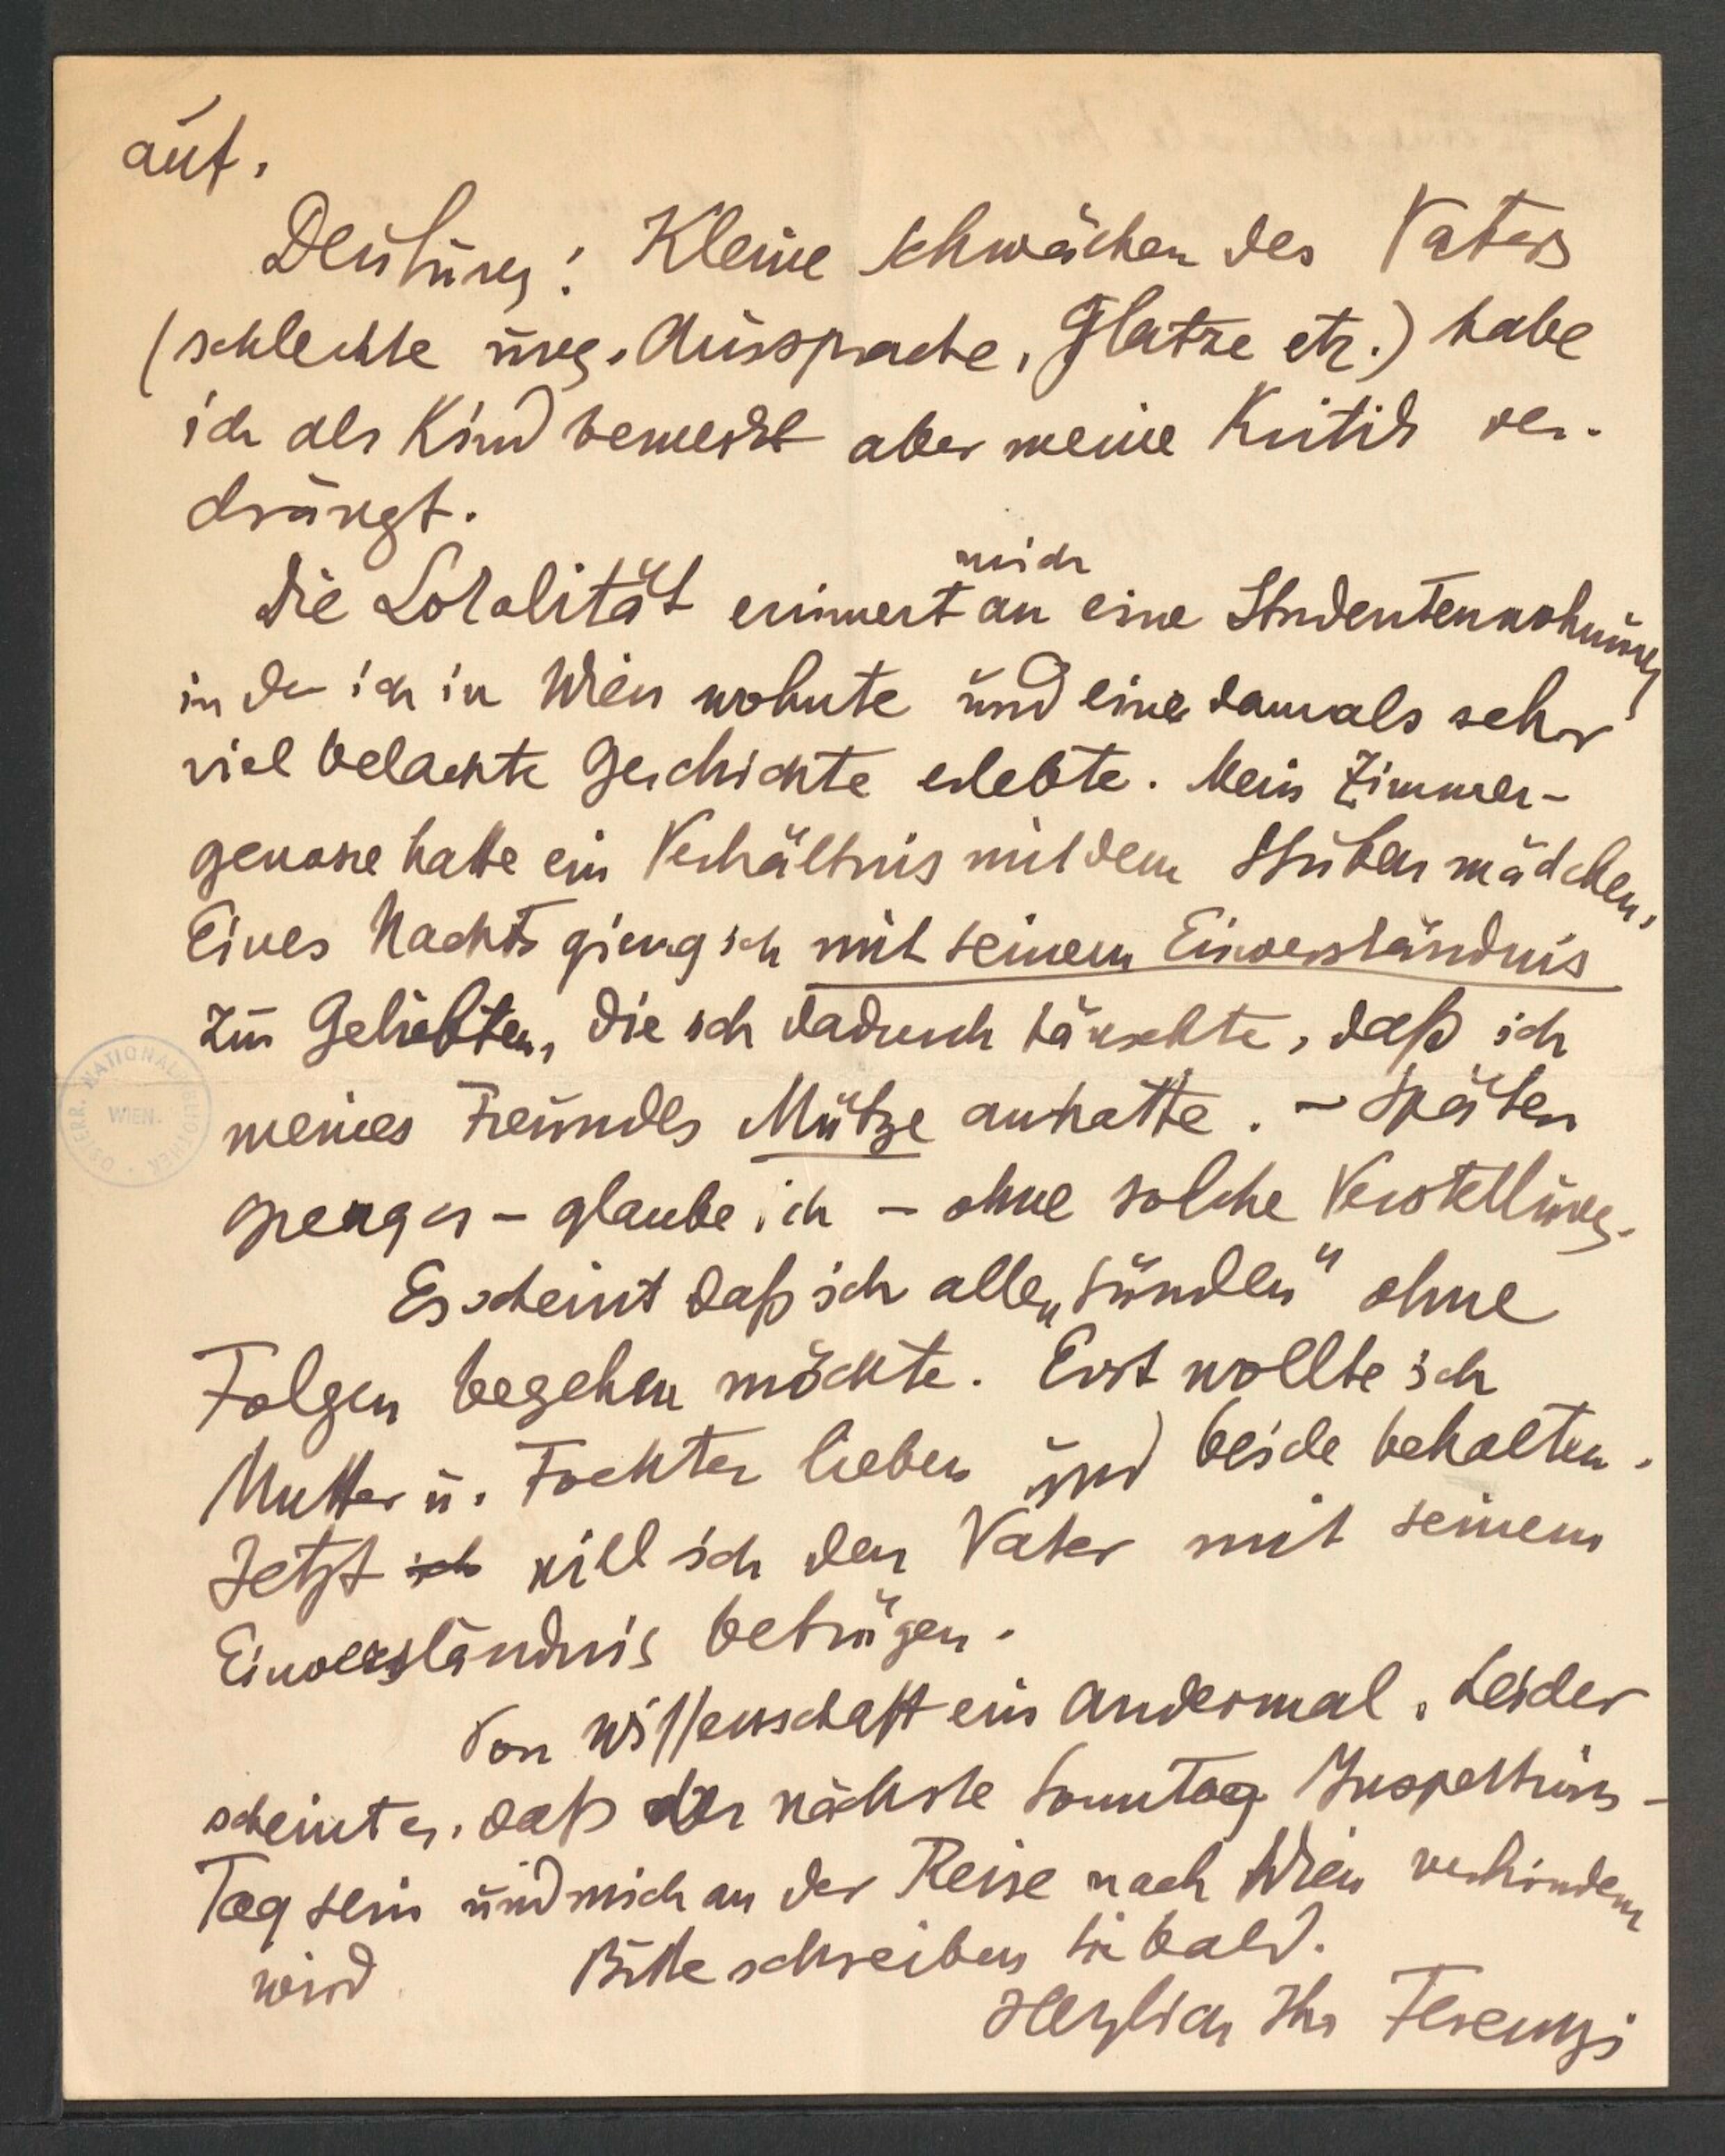 auf.
Deutung: Kleine Schwächen des Vaters
(schlechte ung. Aussprache, Glatze etz.) habe
ich als Kind bemerkt aber meine Kritik ver-
drängt.
Die Lokalität erinnert mich an eine Studentenwohnung
in der ich in Wien wohnte und eine damals sehr
viel belachte Geschichte erlebte. Mein Zimmer-
genosse hatte ein Verhältnis mit dem Stubenmädchen.
Eines Nachts gieng ich mit seinem Einverständnis
zur Geliebten, die ich dadurch täuschte, daß ich
meines Freundes Mütze anhatte. – Später
gieng es – glaube ich – ohne solche Verstellung.
Es scheint daß ich alle „Sünden" ohne
Folgen begehen möchte. Erst wollte ich
Mutter u. Tochter lieben und beide behalten.
Jetzt ich will ich den Vater mit seinem
Einverständnis betrügen.
Von Wissenschaft ein andermal. Leider
scheint es, daß der nächste Sonntag Inspektions-
Tag sein und mich an der Reise nach Wien verhindern
wird. Bitte schreiben Sie bald.
Herzlich Ihr Ferenczi
ÖSTERR. NATIONALBIBLIOTHEK
WIEN.